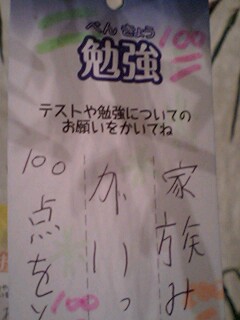 べんきょう
勉強
100
テストや勉強についての
お願いをかいてね
家族み
がいっ
100点を
100